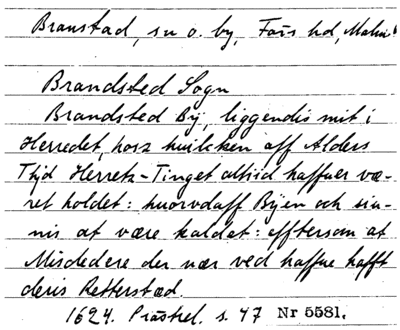 Branstad, sn o. by, Färs hd, Malm.
Brandsted Sogn
Brandsted By, liggendis mit i
Herredet, hosz huilcken aff Alders
Tijd Herretz-Tinget altiid haffuer væ-
ret holdet: huorvdaff Byen och siu-
nis at være kaldet: efftersom at
Misdedere der nær ved haffue hafft
deris Retterstæd.
1624. Prästrel. s. 47 Nr 5581.